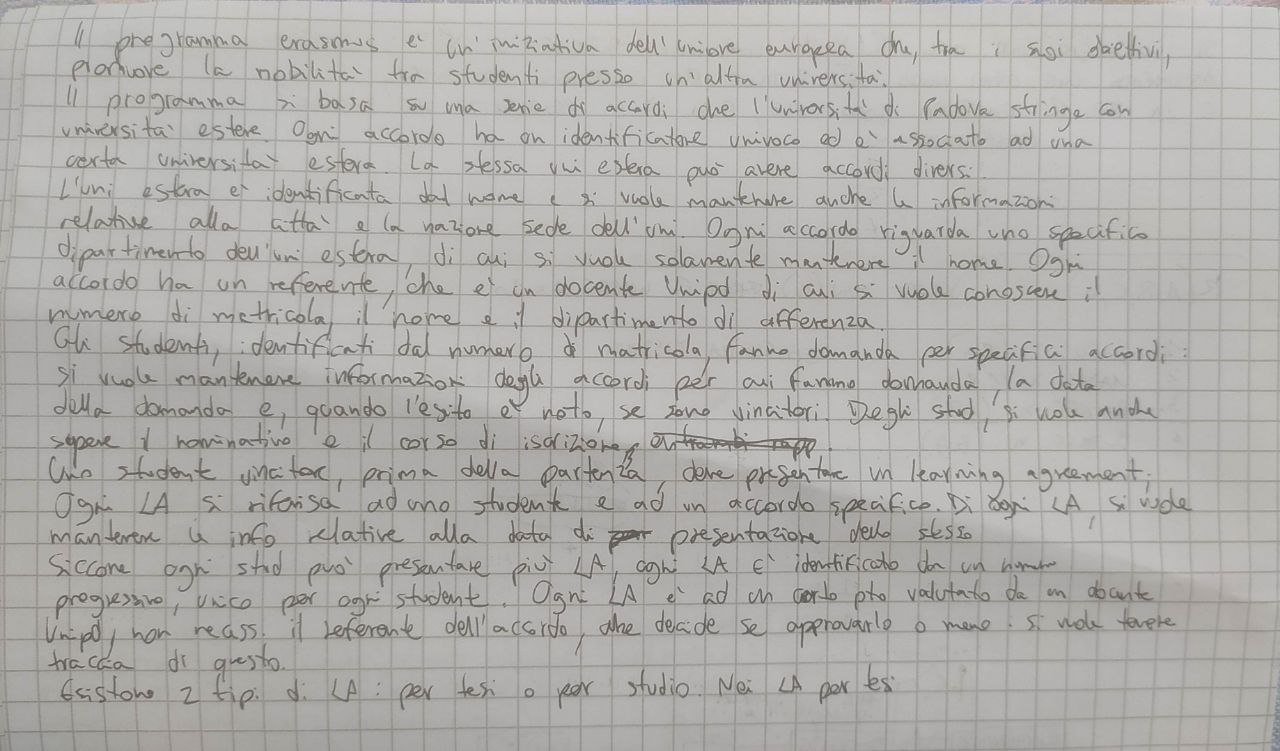 Il programma erasmus è un'iniziativa dell'unione europea che, tra i suoi obiettivi,
promuove la mobilità tra studenti presso un'altra università.
Il programma si basa su una serie di accordi che l'università di Padova stringe con
università estere. Ogni accordo ha un identificatore univoco ed è associato ad una
certa università estera. La stessa uni estera può avere accordi diversi.
L'uni estera è identificata dal nome e si vuole mantenere anche le informazioni
relative alla città e la nazione sede dell'uni. Ogni accordo riguarda uno specifico
dipartimento dell'uni estera, di cui si vuole solamente mantenere il nome. Ogni
accordo ha un referente, che è un docente Unipd di cui si vuole conoscere il
numero di matricola, il nome e il dipartimento di afferenza.
Gli studenti, identificati dal numero di matricola, fanno domanda per specifici accordi:
si vuole mantenere informazioni degli accordi per cui fanno domanda, la data
della domanda e, quando l'esito è noto, se sono vincitori. Degli stud, si vuole anche
sapere il nominativo e il corso di iscrizione,
Uno studente vincitore, prima della partenza, deve presentare un learning agreement;
Ogni LA si riferisa ad uno studente e ad un accordo specifico. Di ogni LA, si vuole
mantenere le info relative alla data di presentazione dello stesso
Siccome ogni stud può presentare più LA, ogni LA è identificato da un numero
progressivo, unico per ogni studente. Ogni LA è ad un certo pto valutato da un docente
Unipd, non necess. il referente dell'accordo, che decide se approvarlo o meno: si vuole tenere
traccia di questo.
Esistono 2 tipi di LA: per tesi o per studio. Nei LA per tesi